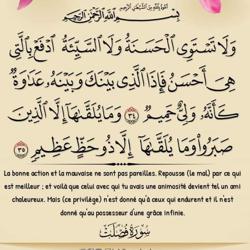 بِسْمِ اللَّهِ الرَّحْمَٰنِ الرَّحِيمِ
وَلَا تَسْتَوِي الْحَسَنَةُ وَلَا السَّيِّئَةُ ادْفَعْ بِالَّتِي
هِيَ أَحْسَنُ فَإِذَا الَّذِي بَيْنَكَ وَبَيْنَهُ عَدَاوَةٌ
كَأَنَّهُ وَلِيٌّ حَمِيمٌ ٣٤ وَمَا يُلَقَّاهَا إِلَّا الَّذِينَ
صَبَرُوا وَمَا يُلَقَّاهَا إِلَّا ذُو حَظٍّ عَظِيمٍ ٣٥
La bonne action et la mauvaise ne sont pas pareilles. Repousse (le mal) par ce qui
est meilleur ; et voilà que celui avec qui tu avais une animosité devient tel un ami
chaleureux. Mais (ce privilège) n'est donné qu'à ceux qui endurent et il n'est
donné qu'au possesseur d'une grâce infinie.
سورة فصلت